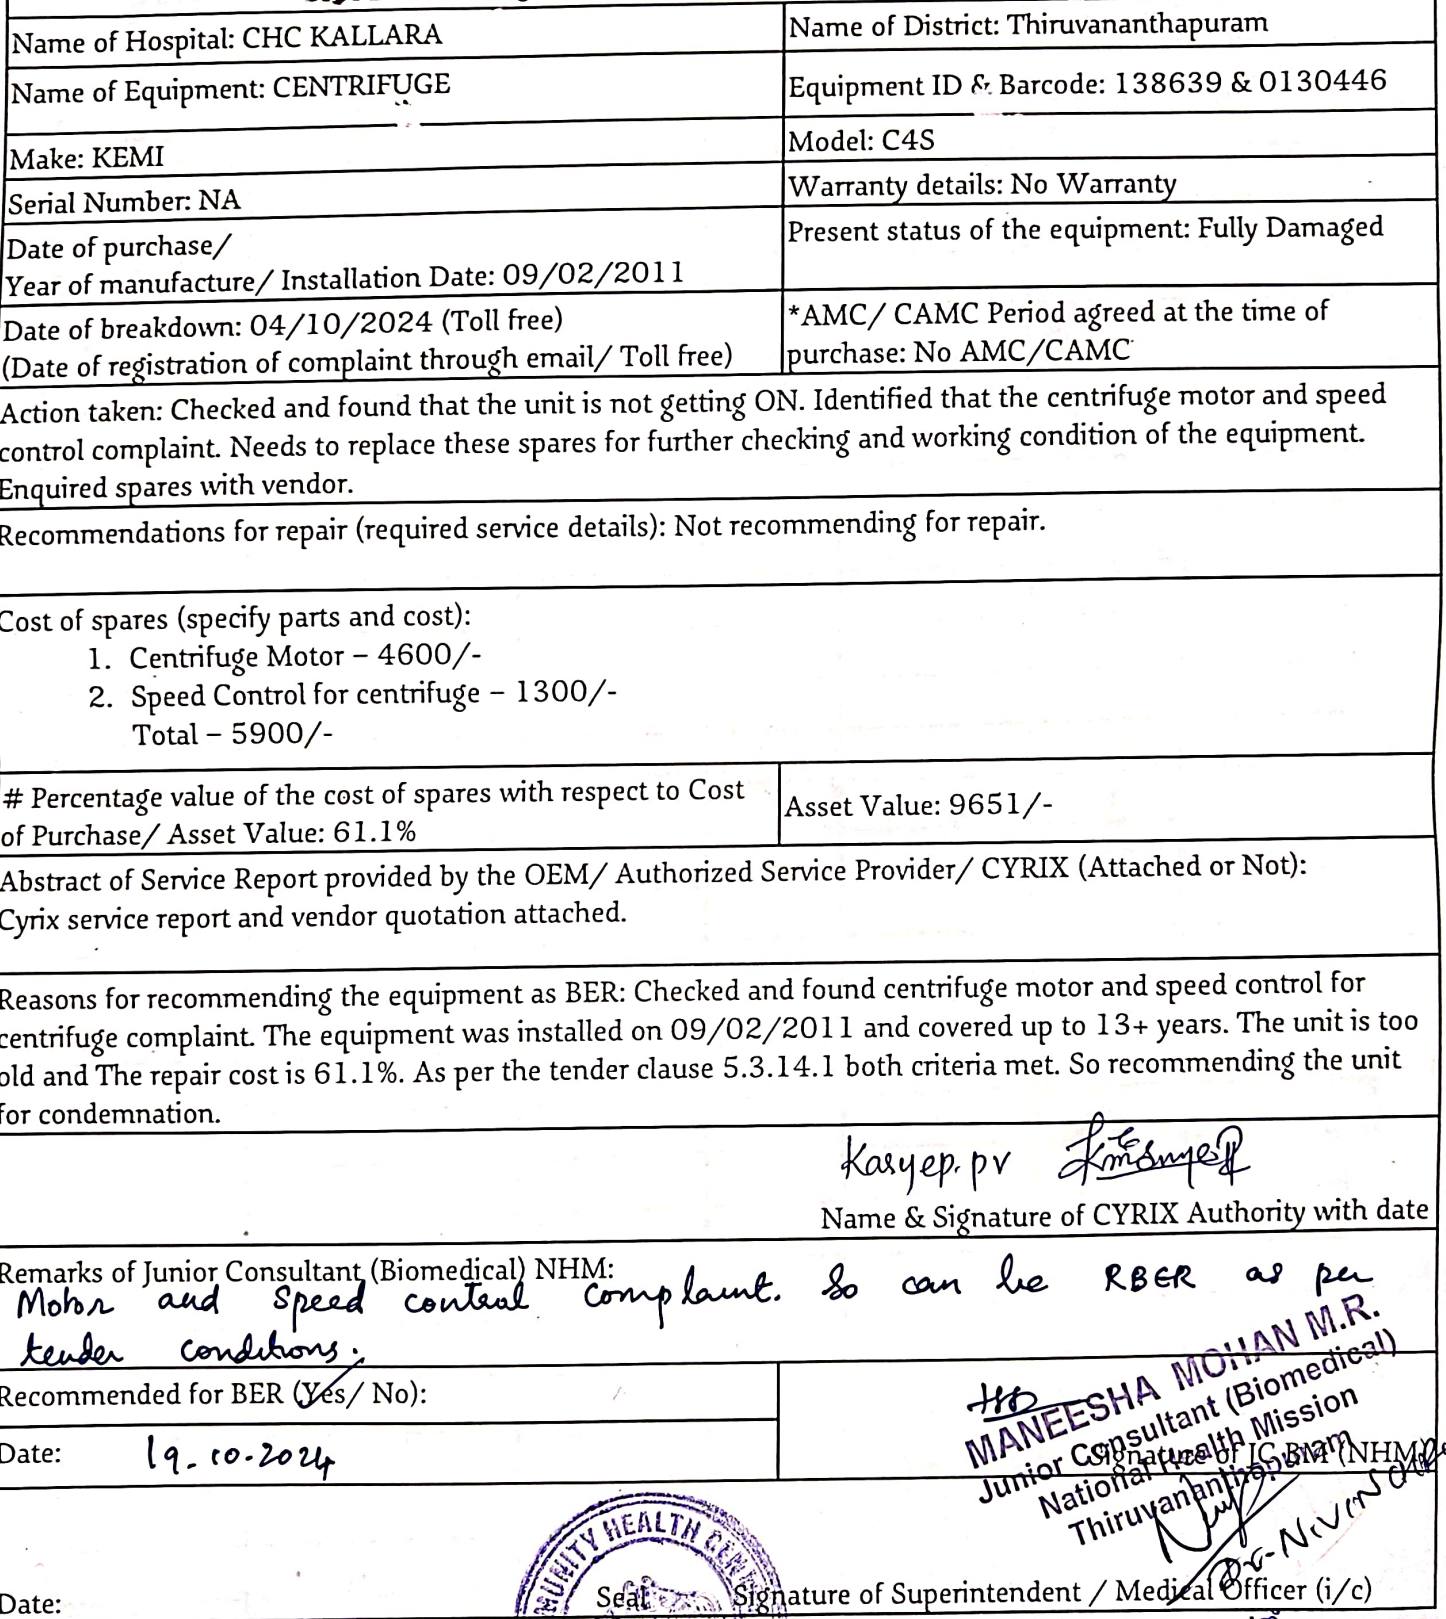 Name of Hospital: CHC KALLARA
Name of District: Thiruvananthapuram
Name of Equipment: CENTRIFUGE
Equipment ID & Barcode: 138639 & 0130446
Make: KEMI
Model: C4S
Serial Number: NA
Warranty details: No Warranty
Date of purchase/
Year of manufacture/ Installation Date: 09/02/2011
Present status of the equipment: Fully Damaged
Date of breakdown: 04/10/2024 (Toll free)
(Date of registration of complaint through email/ Toll free)
*AMC/ CAMC Period agreed at the time of
purchase: No AMC/CAMC
Action taken: Checked and found that the unit is not getting ON. Identified that the centrifuge motor and speed
control complaint. Needs to replace these spares for further checking and working condition of the equipment.
Enquired spares with vendor.
Recommendations for repair (required service details): Not recommending for repair.
Cost of spares (specify parts and cost):
1. Centrifuge Motor – 4600/-
2. Speed Control for centrifuge – 1300/-
Total – 5900/-
# Percentage value of the cost of spares with respect to Cost
of Purchase/ Asset Value: 61.1%
Asset Value: 9651/-
Abstract of Service Report provided by the OEM/ Authorized Service Provider/ CYRIX (Attached or Not):
Cyrix service report and vendor quotation attached.
Reasons for recommending the equipment as BER: Checked and found centrifuge motor and speed control for
centrifuge complaint. The equipment was installed on 09/02/2011 and covered up to 13+ years. The unit is too
old and The repair cost is 61.1%. As per the tender clause 5.3.14.1 both criteria met. So recommending the unit
for condemnation.
Kasyep. pv
Name & Signature of CYRIX Authority with date
Remarks of Junior Consultant (Biomedical) NHM:
Motor and Speed control Complaint. So can be RBER as per
tender conditions.
Recommended for BER (Yes/ No):
Date: 19.10.2024
MANEESHA MOHAN M.R.
Junior Consultant (Biomedical)
National Health Mission
Thiruvananthapuram
Signature of JC BM (NHM)
MUNITY HEALTH CEN
Date:
Seal
Signature of Superintendent / Medical Officer (i/c)